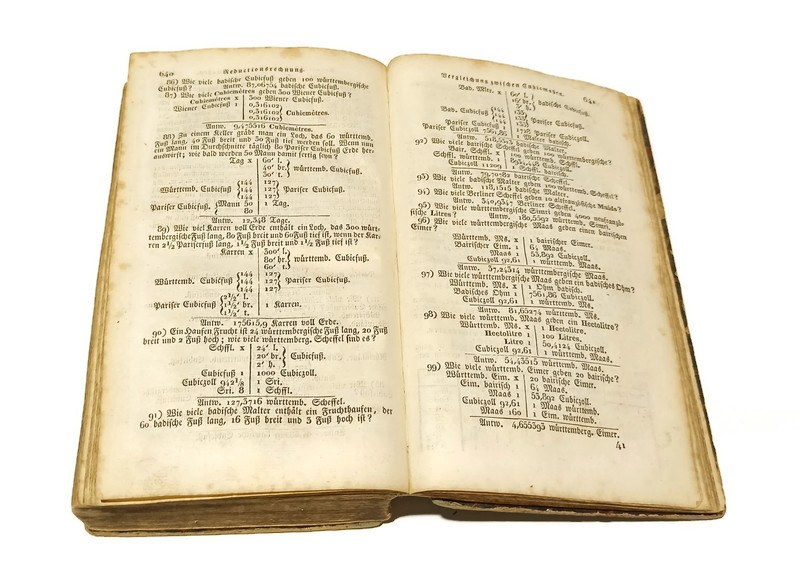 640 Reductionsrechnung
86) Wie viele badische Cubicfuß geben 100 württembergische
Cubicfuß? Antw. 87,06754 badische Cubicfuß.
87) Wie viele Cubicmètres geben 300 Wiener Cubicfuß?
Cubicmètres x 300 Wiener Cubicfuß.
Wiener Cubicfuß 1 0,316102
0,316102 Cubicmètres.
0,316102
Antw. 9,475516 Cubicmètres.
88) Zu einem Keller gräbt man ein Loch, das 60 württemb.
Fuß lang, 40 Fuß breit und 30 Fuß tief werden soll. Wenn nun
ein Mann im Durchschnitte täglich 80 Pariser Cubicfuß Erde her-
auswirft; wie bald werden 50 Mann damit fertig seyn?
Tag x 60′ l.
40′ br. württemb. Cubicfuß.
30′ t.
144 127
Württemb. Cubicfuß 144 127 Pariser Cubicfuß.
144 127
Pariser Cubicfuß Mann 50 1 Tag.
80
Antw. 12,348 Tage.
89) Wie viel Karren voll Erde enthält ein Loch, das 300 würt-
tembergische Fuß lang, 80 Fuß breit und 60 Fuß tief ist, wenn der Kar-
ren 2½ Pariserfuß lang, 1½ Fuß breit und 1½ Fuß tief ist?
Karren x 300′ l.
80′ br. württemb. Cubicfuß.
60′ t.
144 127
Württemb. Cubicfuß 144 127 Pariser Cubicfuß.
144 127
2½′ l.
Pariser Cubicfuß 1½′ br. 1 Karren.
1½′ t.
Antw. 175615,9 Karren voll Erde.
90) Ein Haufen Frucht ist 24 württembergische Fuß lang, 20 Fuß
breit und 2 Fuß hoch; wie viele württemberg. Scheffel sind es?
Schffl. x 24′ l.
20′ br. Cubicfuß.
2′ h.
Cubicfuß 1 1000 Cubiczoll.
Cubiczoll 942⅛ 1 Sri.
Sri. 8 1 Schffl.
Antw. 127,3716 württemb. Scheffel.
91) Wie viele badische Malter enthält ein Fruchthaufen, der
60 badische Fuß lang, 16 Fuß breit und 3 Fuß hoch ist?
Vergleichung zwischen Cubicmaßen. 641
Bad. Mltr. x 60′ l.
16′ br. badische Cubicfuß.
3′ h.
144
Bad. Cubicfuß 144 Pariser Cubicfuß.
144
Pariser Cubicfuß 1 1728 Pariser Cubiczoll.
Pariser Cubiczoll 1 Malter.
Antw. badische Malter.
92) Wie viele bairische Scheffel geben 100 württembergische?
Bair. Schffl. x 100 württemb. Schffl.
Schffl. württemb. 1 Cubiczoll.
Cubiczoll 11209 1 Schffl. bairisch.
Antw. 79,7082 bairische Scheffel.
93) Wie viele badische Malter geben 100 württemb. Scheffel?
Antw. 118,1515 badische Malter.
94) Wie viele Berliner Scheffel geben 10 altfranzösische Muids?
Antw. 340,9347 Berliner Scheffel.
95) Wie viele württembergische Simri geben 4000 neufranzö-
sische Litres? Antw. 180,5592 württemb. Simri.
96) Wie viele württembergische Maas geben einen bairischen
Eimer?
Württemb. Ms. x 1 bairischer Eimer.
Bairischer Eim. 1 64 Maas.
Maas 1 53,892 Cubiczoll.
Cubiczoll 92,61 1 württemb. Maas.
Antw. 37,24314 württembergische Maas.
97) Wie viele württembergische Maas geben ein badisches Ohm?
Württemb. Ms. x 1 Ohm badisch.
Badisches Ohm 1 7561,86 Cubiczoll.
Cubiczoll 92,61 1 württemb. Ms.
Antw. 81,65274 württemb. Ms.
98) Wie viele württemb. Maas geben ein Hectolitre?
Württemb. Ms. x 1 Hectolitre.
Hectolitre 1 100 Litres.
Litre 1 50,4124 Cubiczoll.
Cubiczoll 92,61 1 württemb. Maas.
Antw. 54,43515 württemb. Maas.
99) Wie viele württemb. Eimer geben 20 bairische?
Württemb. Eim. x 20 bairische Eimer.
Eim. bairisch 1 64 Maas.
Maas 1 53,892 Cubiczoll.
Cubiczoll 92,61 1 Maas württemb.
Maas 160 1 Eim. württemb.
Antw. 4,655393 württemberg. Eimer.
41